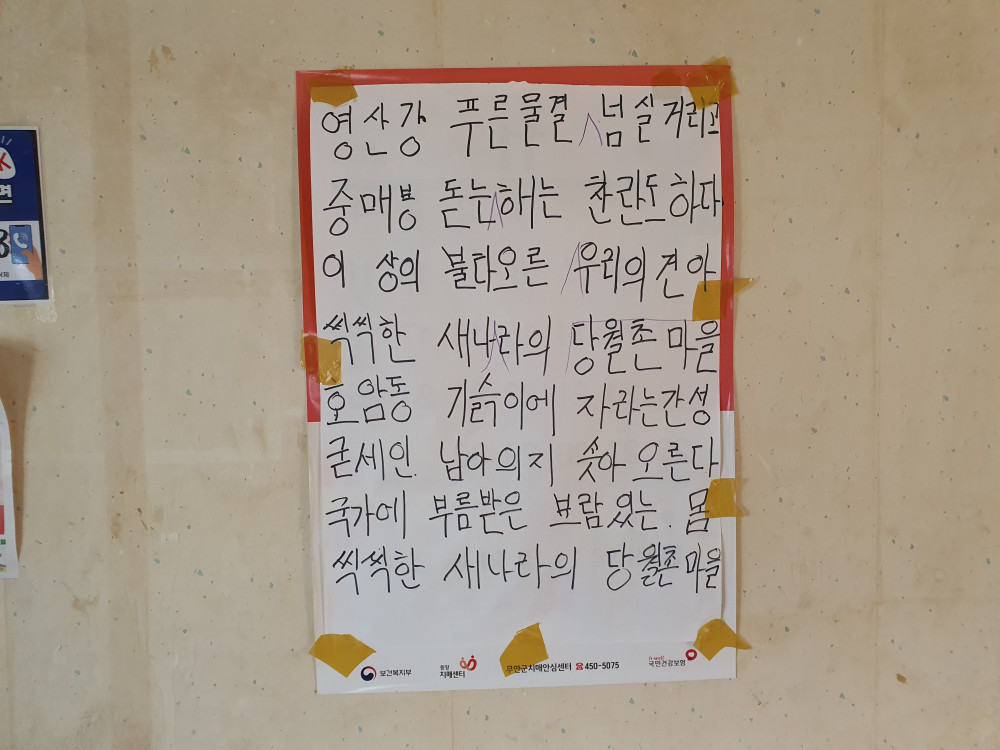 영산강 푸른물결 넘실거리고
중매봉 돋는해는 찬란도하다
이 상의 불타오른 우리의 건아
씩씩한 새나라의 당월촌마을
호암동 기슭이에 자라는간성
굳세인 남아의지 솟아 오른다
국가에 부름받은 보람있는. 몸
씩씩한 새나라의 당월촌마을
보건복지부
중앙
치매센터
무안군치매안심센터 ☎450-5075
h·well
국민건강보험
K
면
8